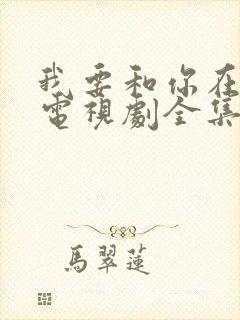 我要和你在
電視劇全集
馬翠蓮